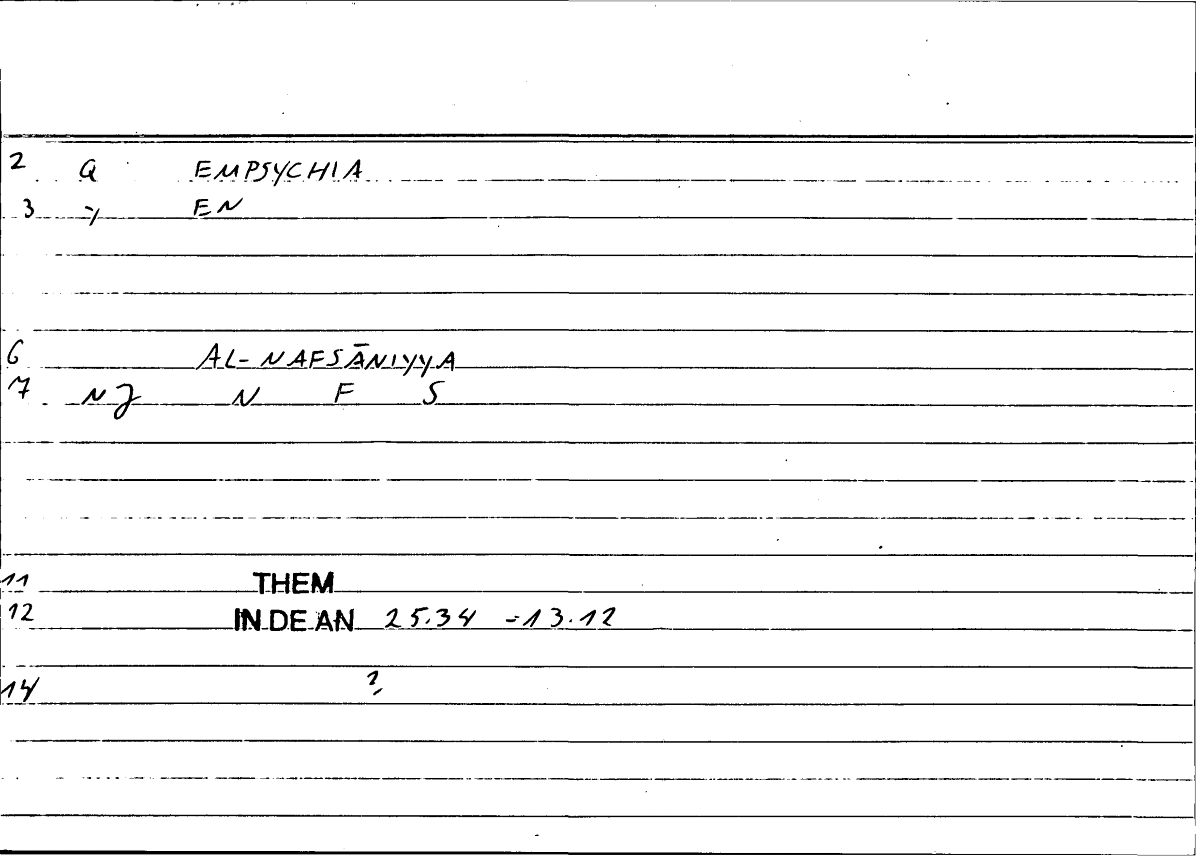 2 Q EMPSYCHIA
3 EN
6 AL-NAFSĀNIYYA
7 NJ N F S
11 THEM
12 IN DE AN 25.34 = 13.12
14 ?